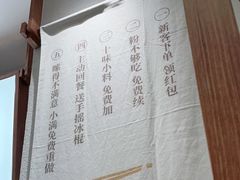 ㊀ 新客下单 领红包
㊁ 粉不够吃 免费续
㊂ 十味小料 免费加
㊃ 主动回餐 送手摇冰棍
㊄ 味得不满意 小满免费重做